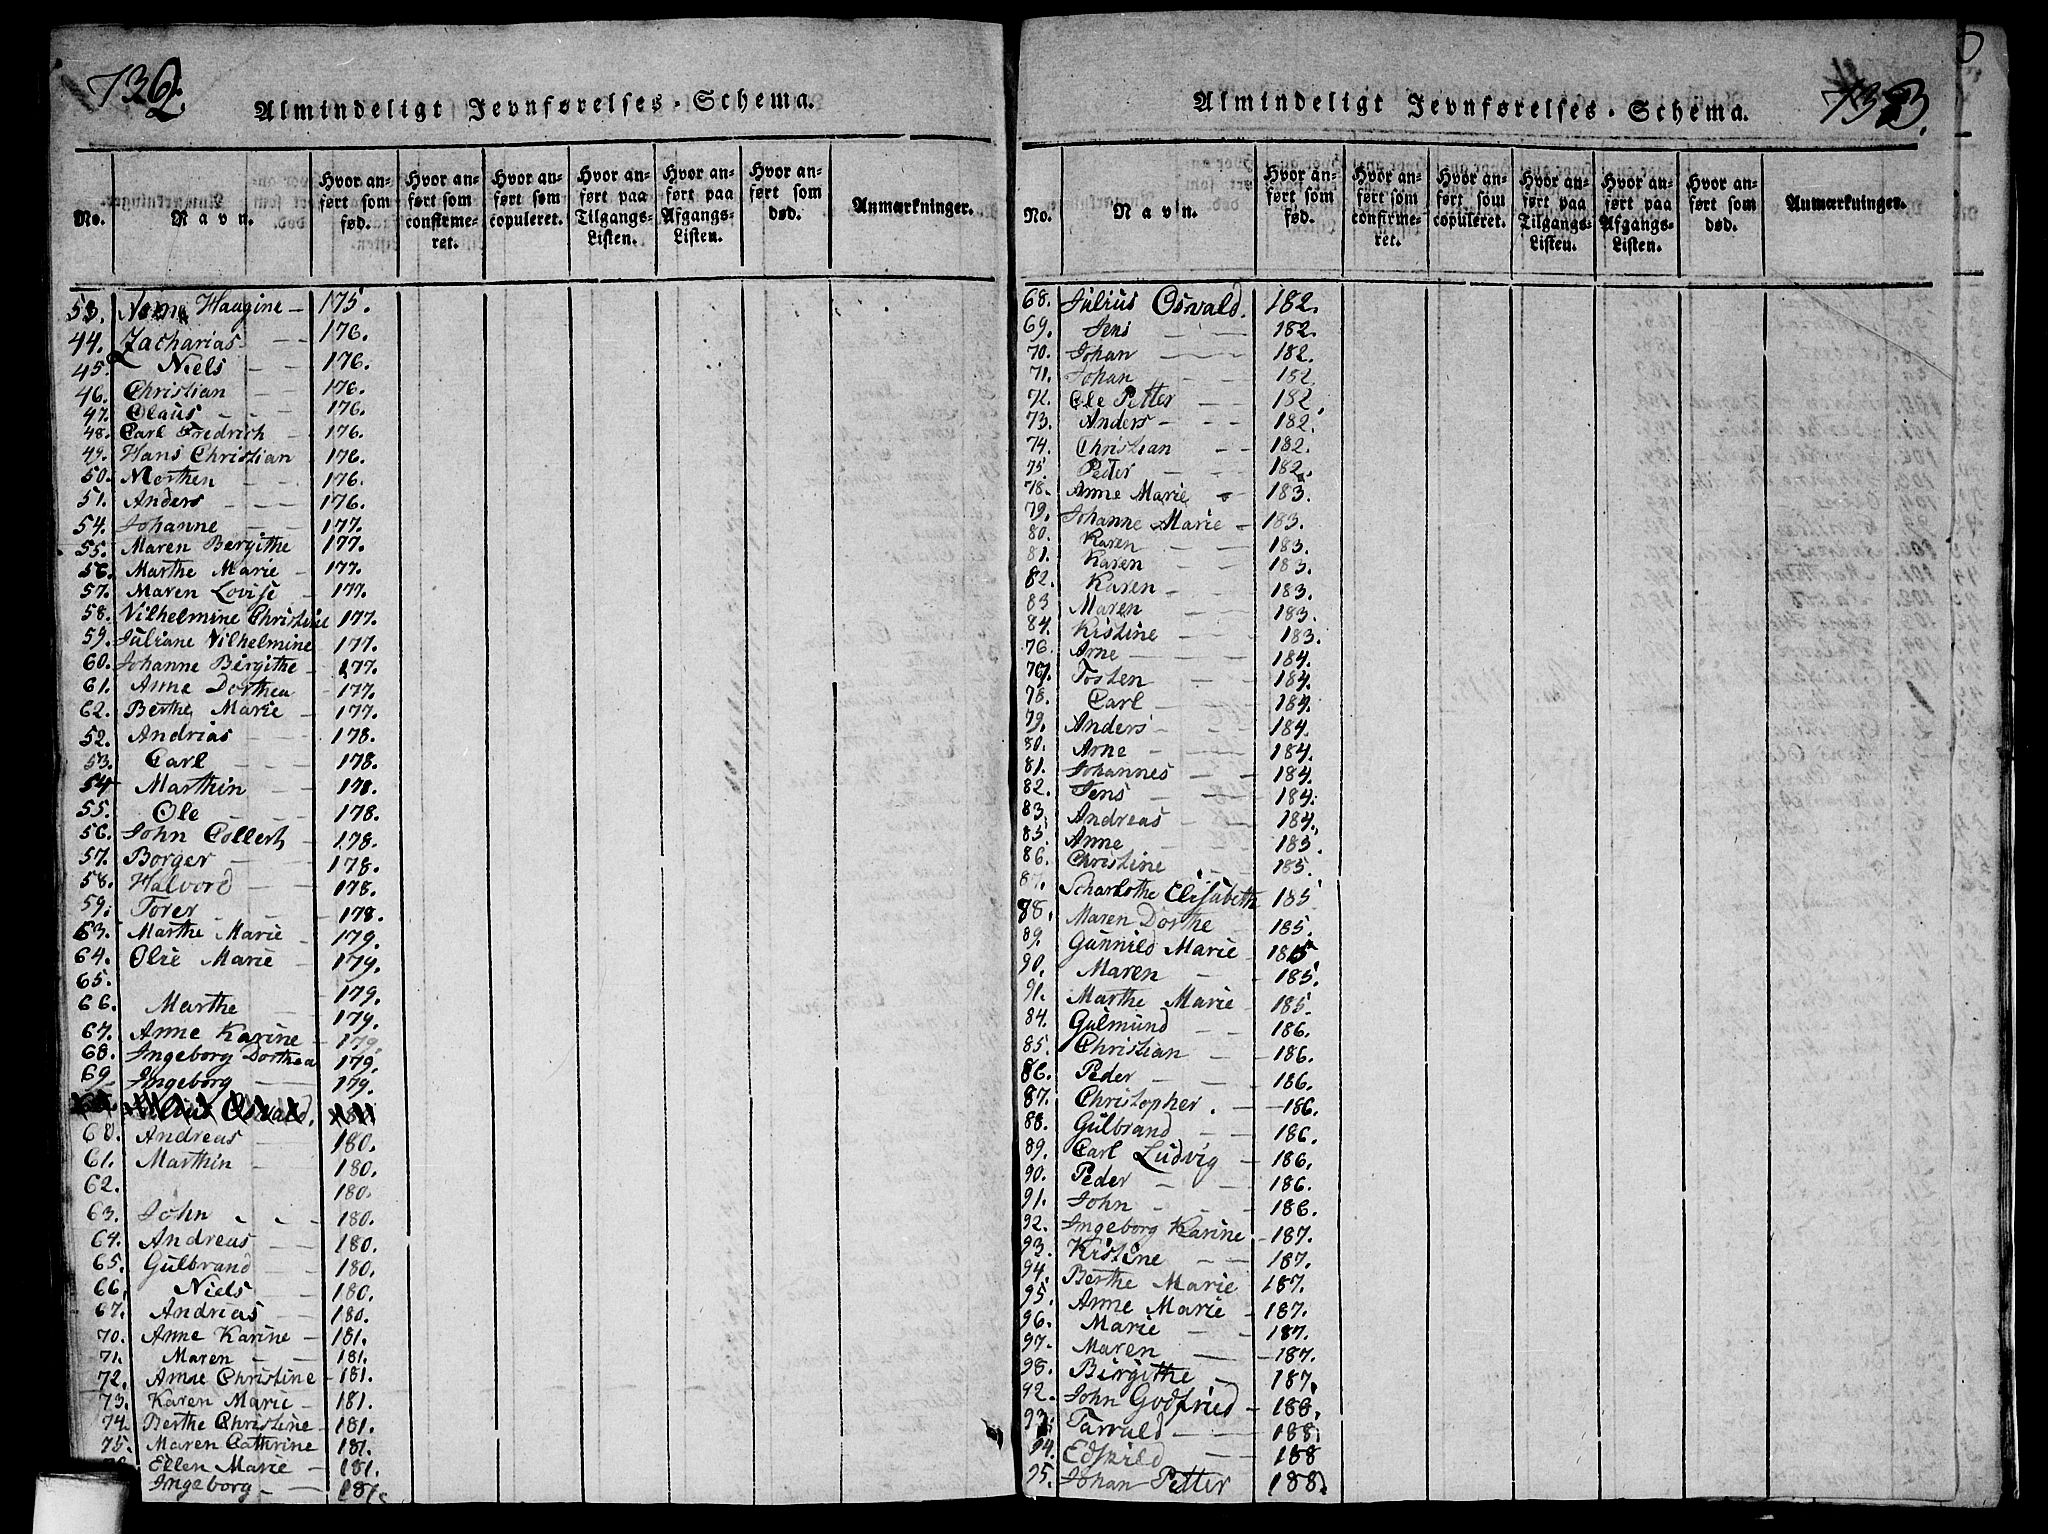 1362.
Almindeligt Jevnførelses-Schema.
No.
Navn.
Hvor anført som fød.
Hvor anført som confirmeret.
Hvor anført som copuleret.
Hvor anført paa Tilgangs-Listen.
Hvor anført paa Afgangs-Listen.
Hvor anført som død.
Anmærkninger.
53. Haagine 175.
44. Zacharias 176.
45. Niels 176.
46. Christian 176.
47. Olaus 176.
48. Carl Fredrich 176.
49. Hans Christian 176.
50. Morthen 176.
51. Anders 176.
54. Johanne 177.
55. Maren Bergithe 177.
56. Marthe Marie 177.
57. Maren Lovise 177.
58. Vilhelmine Christine 177.
59. Juliane Vilhelmine 177.
60. Johanne Birgithe 177.
61. Anne Dorthea 177.
62. Berthe Marie 177.
52. Andrias 178.
53. Carl 178.
54 Marthin 178.
55. Ole 178.
56. John Collert 178.
57. Borger 178.
58. Halvord 178.
59. Torer 178.
63. Marthe Marie 179.
64. Olie Marie 179.
65. 179.
66. Marthe 179.
67. Anne Karine 179.
68. Ingeborg Dorthea 179.
69. Ingeborg 179.
60. Andreas 180.
61. Marthin 180.
62. 180.
63. John 180.
64. Andreas 180.
65. Gulbrand 180.
66. Niels 180.
67. Andreas 180.
70. Anne Karine 181.
71. Maren 181.
72. Anne Christine 181.
73. Karen Marie 181.
74. Berthe Christine 181.
75. Maren Cathrine 181.
Ellen Marie 181.
Ingeborg 181.
Almindeligt Jevnførelses-Schema.
No.
Navn.
Hvor anført som fød.
Hvor anført som confirmeret.
Hvor anført som copuleret.
Hvor anført paa Tilgangs-Listen.
Hvor anført paa Afgangs-Listen.
Hvor anført som død.
Anmærkninger.
68. Julius Osvald. 182.
69. Jens 182.
70. Johan 182.
71. Johan 182.
72. Ole Petter 182.
73. Anders 182.
74. Christian 182.
75 Peter 182.
78. Anne Marie 183.
79. Johanne Marie 183.
80. Karen 183.
81. Karen 183.
82. Karen 183.
83 Maren 183.
84. Kistine 183.
76. Arne 184.
77. Tosten 184.
78. Carl 184.
79. Anders 184.
80. Arne 184.
81. Johannes 184.
82. Jens 184.
83. Andreas 184.
85. Anne 185.
86. Christine 185.
87. Scharlothe Elisabeth 185
88. Maren Dorthe 185.
89. Gunnild Marie 185
90. Maren 185.
91. Marthe Marie 185.
84. Gulmund 186.
85. Christian 186.
86. Peder 186.
87. Christopher 186.
88. Gulbrand 186.
89. Carl Ludvig 186.
90. Peder 186.
91. John 186.
92. Ingeborg Karine 187.
93. Kistine 187.
94. Berthe Marie 187.
95. Anne Marie 187.
96. Marie 187.
97. Maren 187.
98. Birgithe 187.
92. John Godfried 188.
93. Tarvald 188.
94. Edskild 188
95. Johan Petter 188.